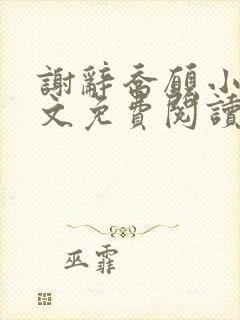 謝辭喬願小
文免費閱讀
巫霏